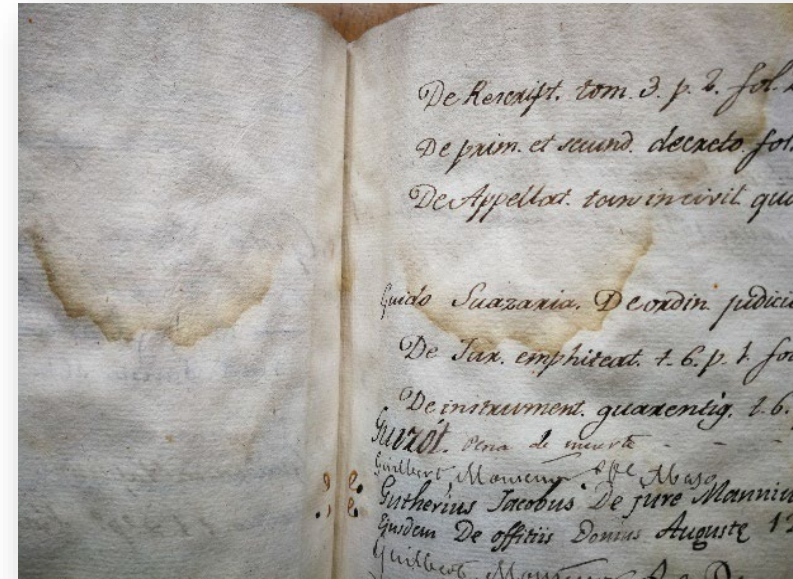 De Rescript. tom. 3. p. 2. fol.
De prim. et secund. decreto. fol.
De Appellat. tam in civil. qu
Guido Suazaria. De ordin. judici
De Jur. emphiteat. t. 6. p. 1. fo
De instrument. guarentig. t. 6.
Guizót. Pena de muerte - - -
Guilbert
Gutherius Jacobus De jure Manniu
Ejusdem De offitiis Domus Augustę 12
Guilbert